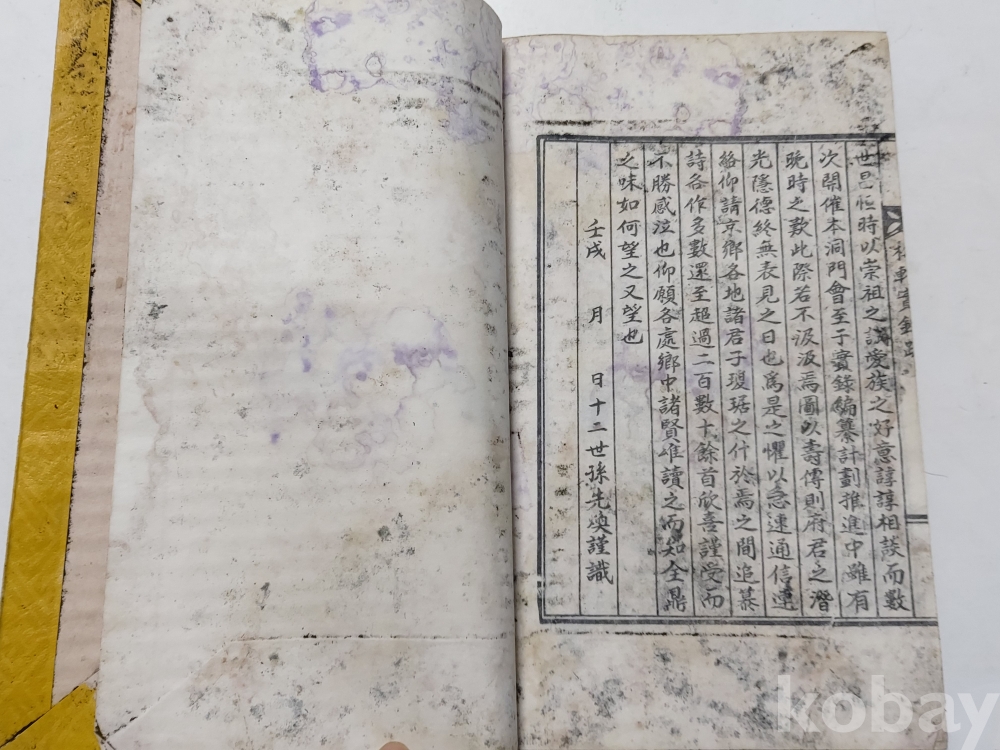 世昌恒時以崇祖之誠愛族之好意諄諄相談而數
次開催本洞門會至于實錄編纂計劃推進中雖有
晩時之歎此際若不汲汲焉圖以壽傳則府君之潛
光隱德終無表見之日也爲是之懼以急速通信連
絡仰請京鄕各地諸君子瓊琚之什於焉之間追慕
詩各作多數還至超過二百數十餘首欣喜謹受而
不勝感泣也仰願各處鄕中諸賢唯讀之而知全鼎
之味如何望之又望也
壬戌 月 日十二世孫先煥謹識
軒實錄跋
kobay